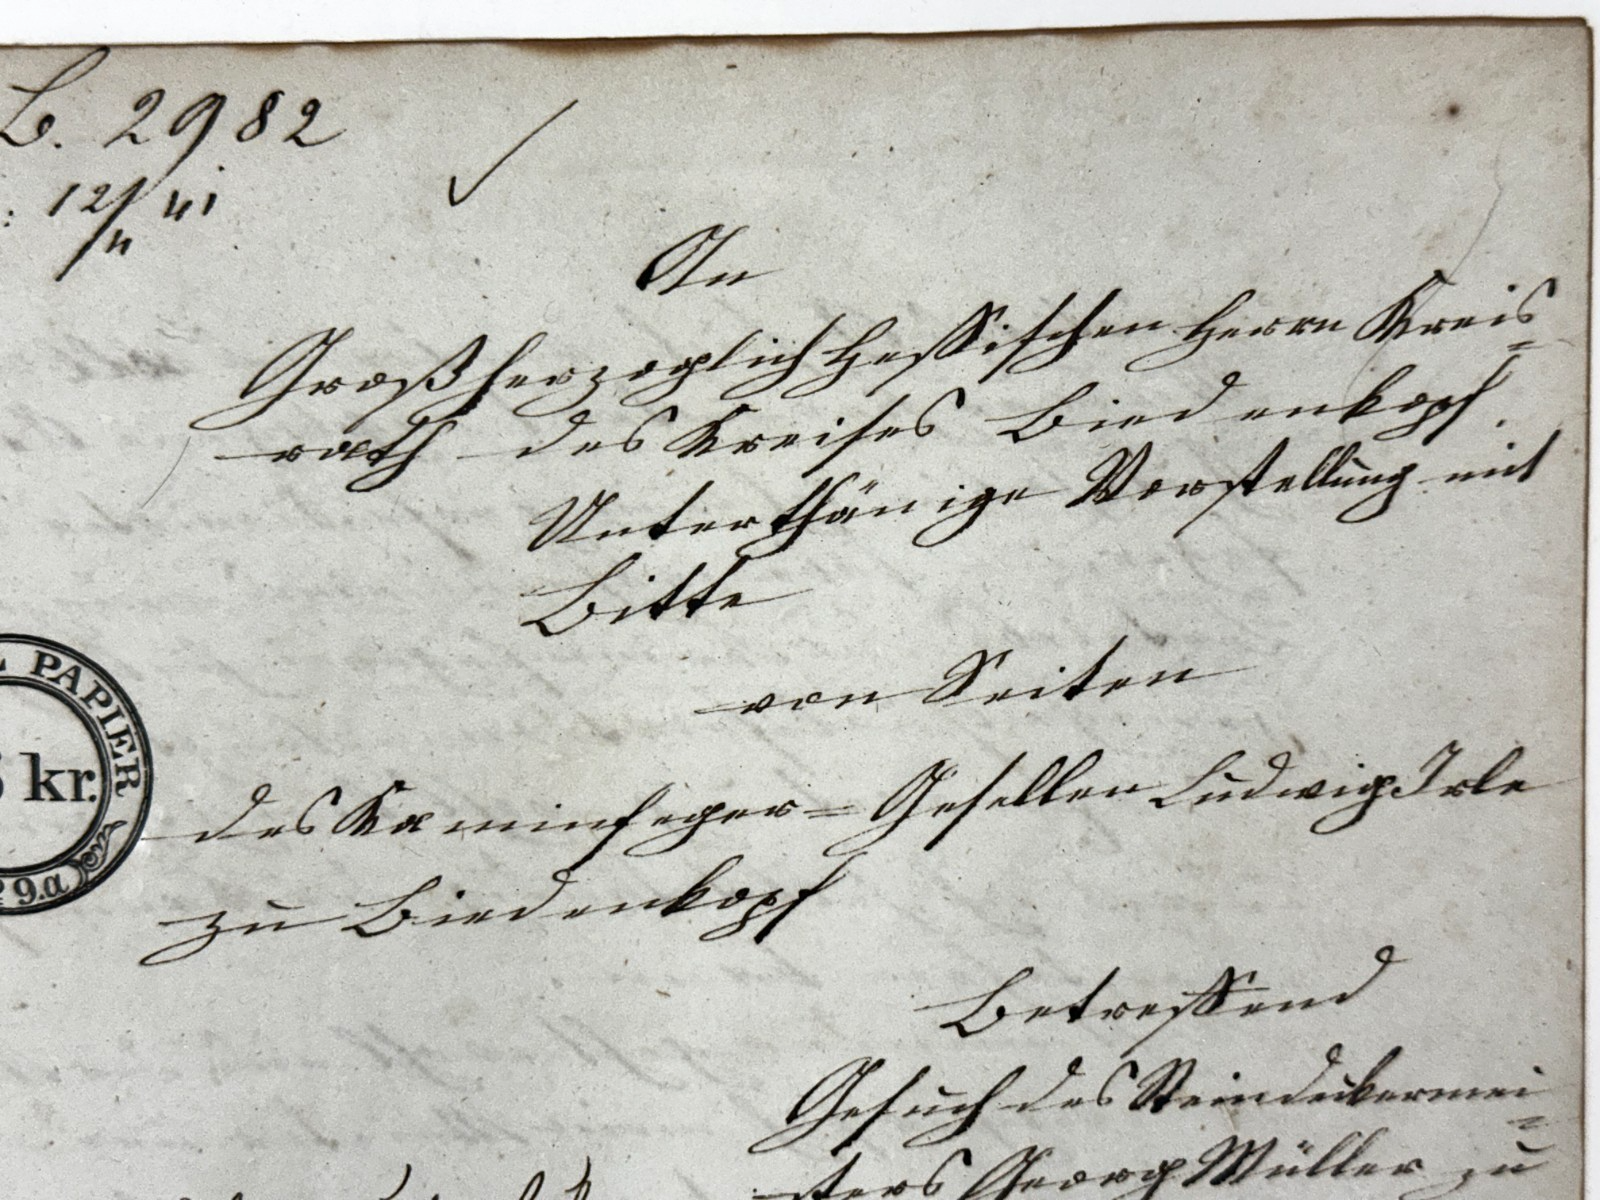 B. 2982
12/4 41
An
Großherzoglich Hessischen Herrn Kreis=
rath des Kreises Biedenkopf.
Unterthänige Vorstellung mit
Bitte
von Seiten
PAPIER
kr.
9.a
des Kaminfeger=Gesellen Ludwig Irle
zu Biedenkopf
Betreffend
Gesuch des Steindeckermei=
sters Georg Müller zu